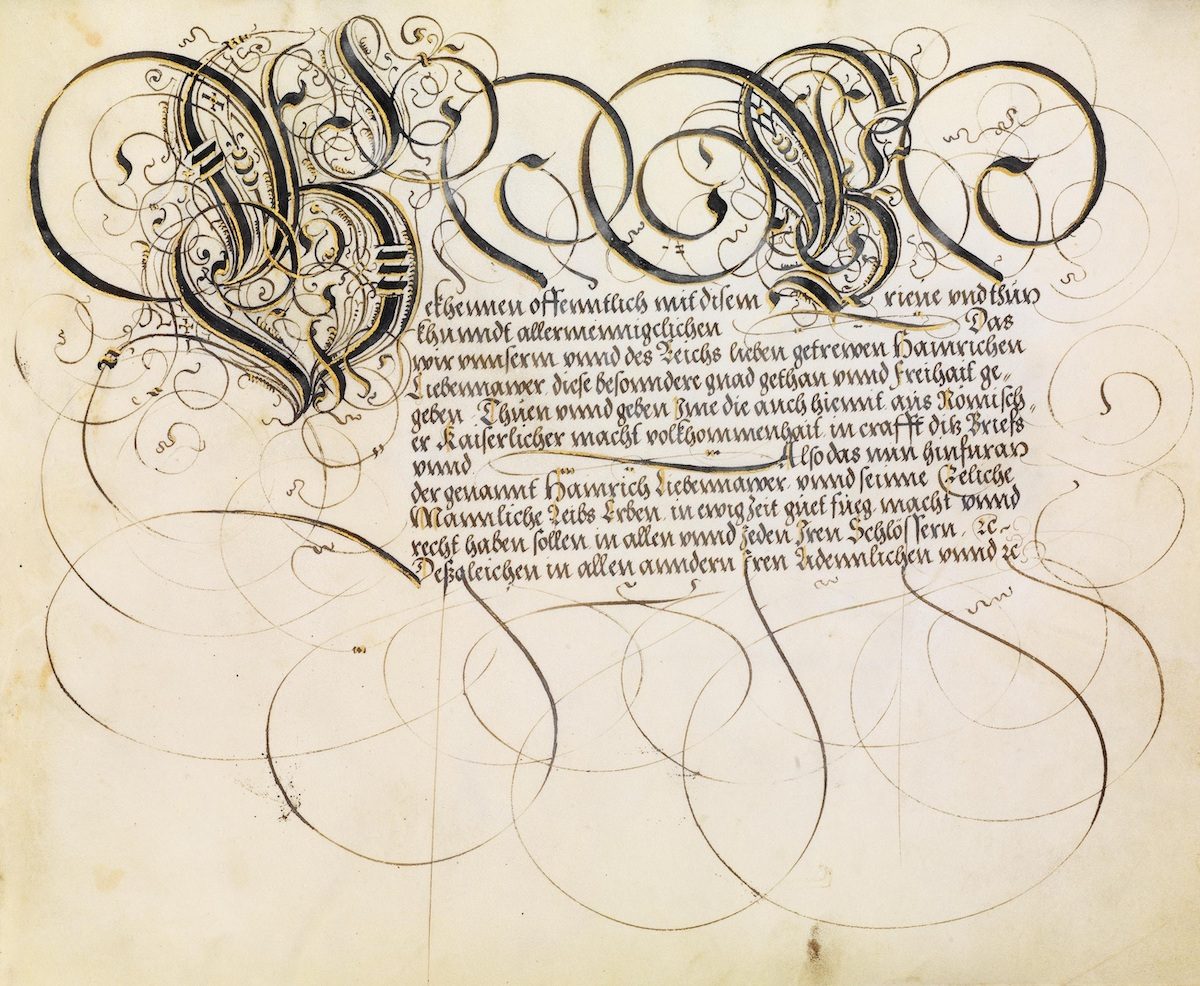 Bekhennen offenntlich mit disem Brieue vnd thun
khunndt allermennigclichen Das
wir vnnserm vnnd des Reichs lieben getrewen Hainrichen
Liebennawer, diese besonndere gnad gethan vnnd Freihait ge„
geben. Thuen vnnd geben Jme die auch hiemit, aus Romisch„
er Kaiserlicher macht volkhommenhait, in crafft diß Briefs
vnnd Also das nun hinfuran
der genannt Hainrich Liebennawer, vnnd seinne Eeliche
Mannliche Leibs Erben, in ewig Zeit guet fueg, macht vnnd
recht haben sollen in allen vnnd Jeden Jren Schlössern, ꝛc
Deßgleichen in allen anndern Jren Adennlichen vnnd ꝛc